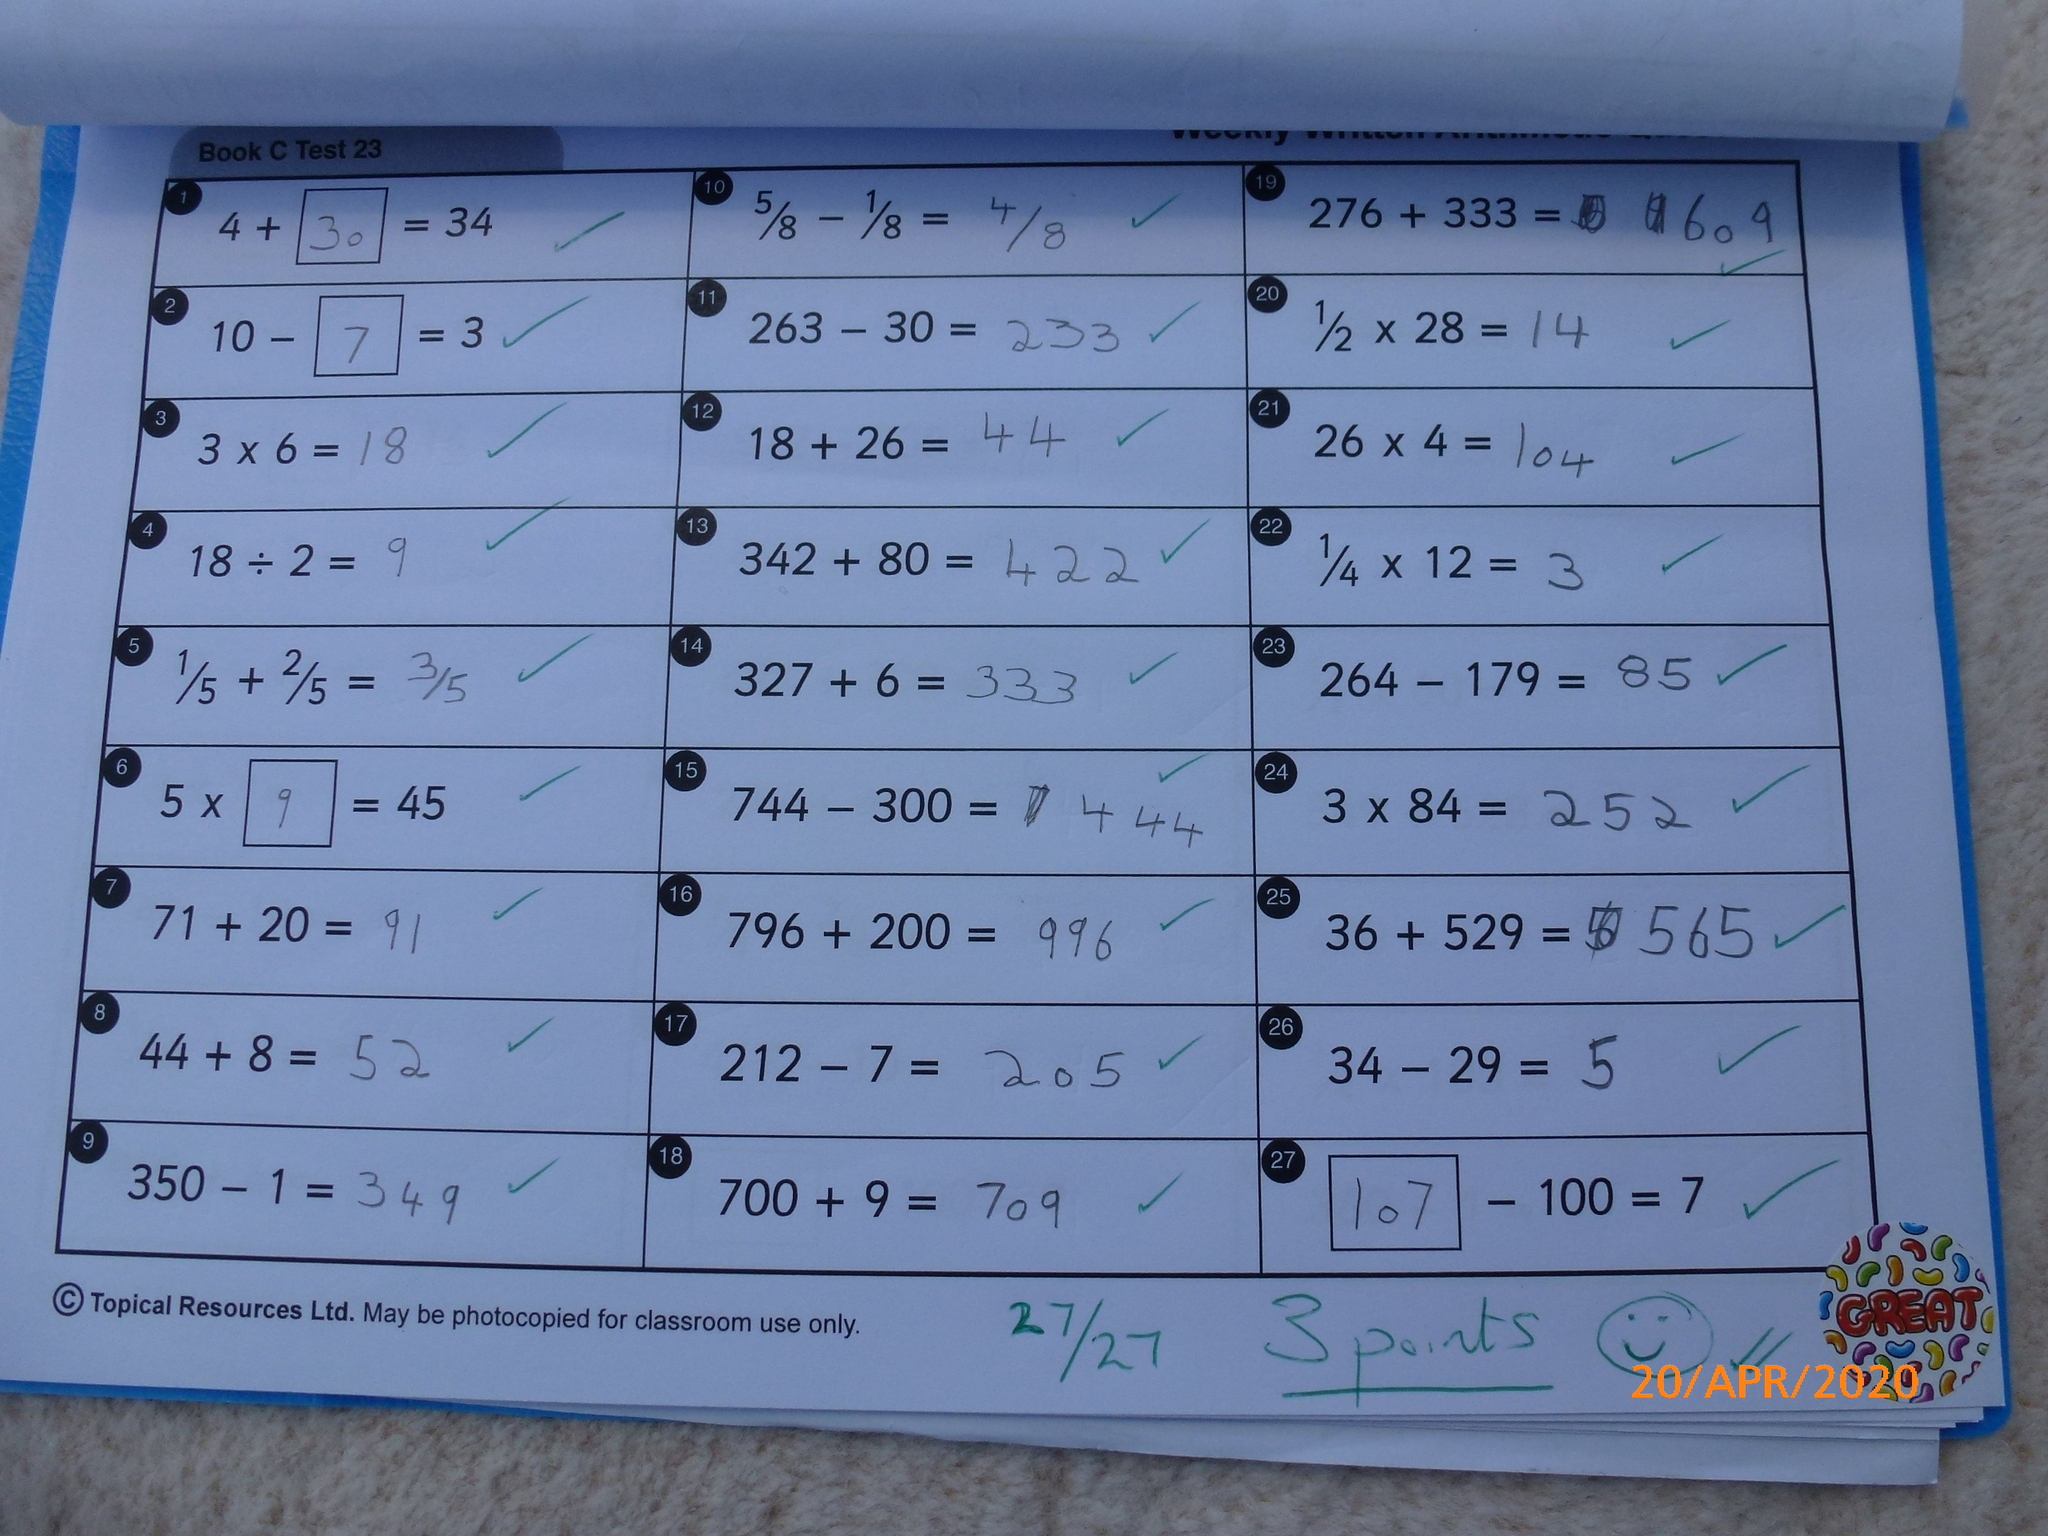 Book C Test 23
1 4 + 30 = 34
2 10 – 7 = 3
3 3 x 6 = 18
4 18 ÷ 2 = 9
5 1/5 + 2/5 = 3/5
6 5 x 9 = 45
7 71 + 20 = 91
8 44 + 8 = 52
9 350 – 1 = 349
10 5/8 – 1/8 = 4/8
11 263 – 30 = 233
12 18 + 26 = 44
13 342 + 80 = 422
14 327 + 6 = 333
15 744 – 300 = 444
16 796 + 200 = 996
17 212 – 7 = 205
18 700 + 9 = 709
19 276 + 333 = 609
20 1/2 x 28 = 14
21 26 x 4 = 104
22 1/4 x 12 = 3
23 264 – 179 = 85
24 3 x 84 = 252
25 36 + 529 = 565
26 34 – 29 = 5
27 107 – 100 = 7
© Topical Resources Ltd. May be photocopied for classroom use only.
27/27 3 points
GREAT
20/APR/2020